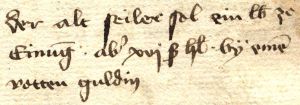 der alt seiler sol ein lb ze
Einung · ab xvi ß hlr · by einē
rotten guldin